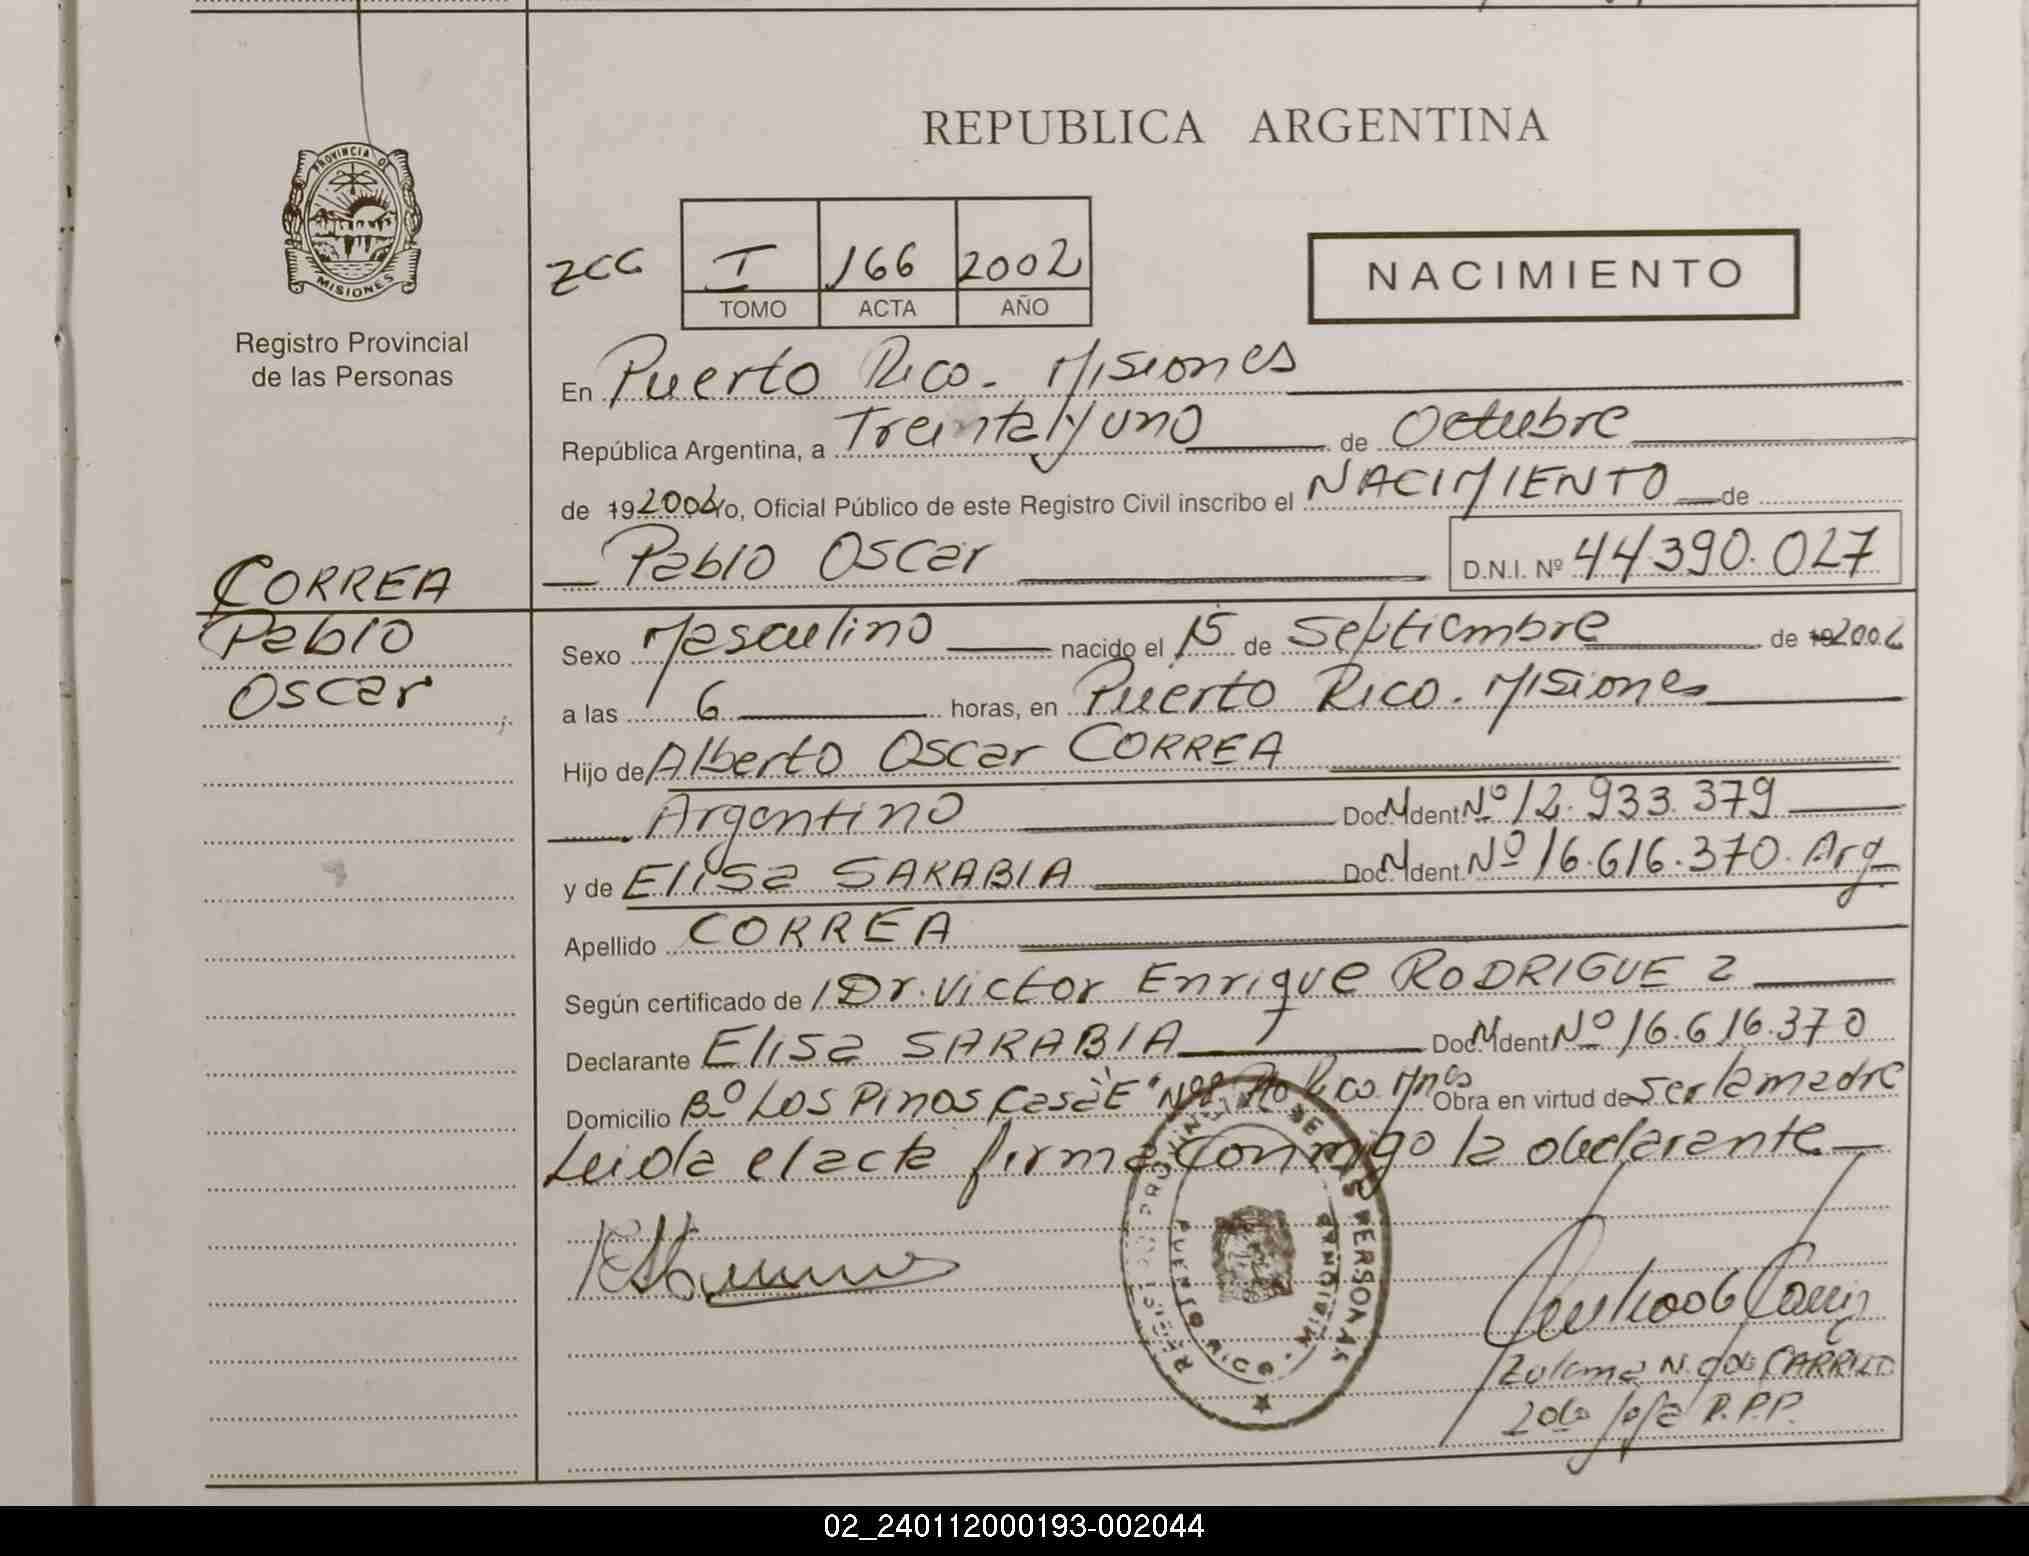 REPUBLICA ARGENTINA
PROVINCIA DE
MISIONES
Registro Provincial
de las Personas
I 166 2002
TOMO ACTA AÑO
NACIMIENTO
En Puerto Rico. Misiones
República Argentina, a Treinta y uno de Octubre
de 19 2002 yo, Oficial Público de este Registro Civil inscribo el NACIMIENTO de
Pablo Oscar D.N.I. Nº 44.390.027
CORREA
Pablo
Oscar
Sexo Masculino nacido el 15 de Septiembre de 19 2002
a las 6 horas, en Puerto Rico. Misiones
Hijo de Alberto Oscar CORREA
Argentino Doc. Ident. Nº 12.933.379
y de Elisa SARABIA Doc. Ident. Nº 16.616.370. Arg
Apellido CORREA
Según certificado de Dr. Victor Enrique RODRIGUEZ
Declarante Elisa SARABIA Doc. Ident. Nº 16.616.370
Domicilio Bº Los Pinos Casa "E" Pto Rico. Mnes Obra en virtud de ser la madre
Leida el acta firma conmigo la declarante
REGISTRO PROVINCIAL DE LAS PERSONAS
PUERTO RICO - MISIONES
CARRILLO
Jefa R.P.P.
02_240112000193-002044